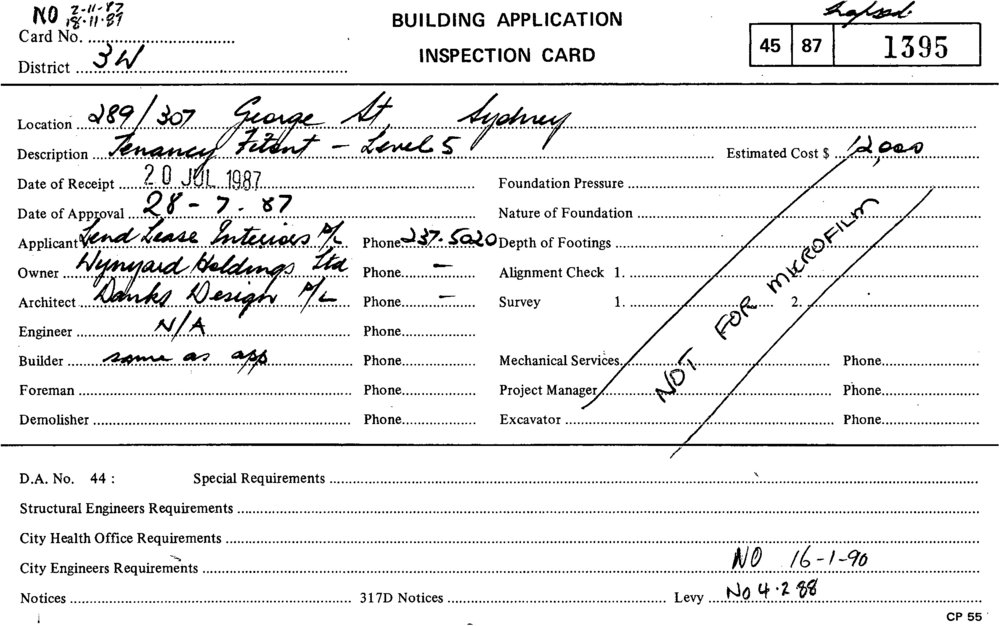 NO 2-11-87
18·11·87
BUILDING APPLICATION
INSPECTION CARD
lapsed
Card No.
District 3W
45 87 1395
Location 289/307 George St Sydney
Description Tenancy Fitout - Level 5 Estimated Cost $ 12,000
Date of Receipt 20 JUL 1987 Foundation Pressure
Date of Approval 28-7-87 Nature of Foundation
Applicant Lend Lease Interiors P/L Phone 237·5020 Depth of Footings
Owner Wynyard Holdings Ltd Phone – Alignment Check 1.
Architect Danks Design P/L Phone – Survey 1. 2.
Engineer N/A Phone
Builder same as app Phone Mechanical Services Phone
Foreman Phone Project Manager Phone
Demolisher Phone Excavator Phone
NOT FOR MICROFILM
D.A. No. 44 : Special Requirements
Structural Engineers Requirements
City Health Office Requirements
City Engineers Requirements NO 16-1-90
Notices 317D Notices Levy No 4·2 88
CP 55